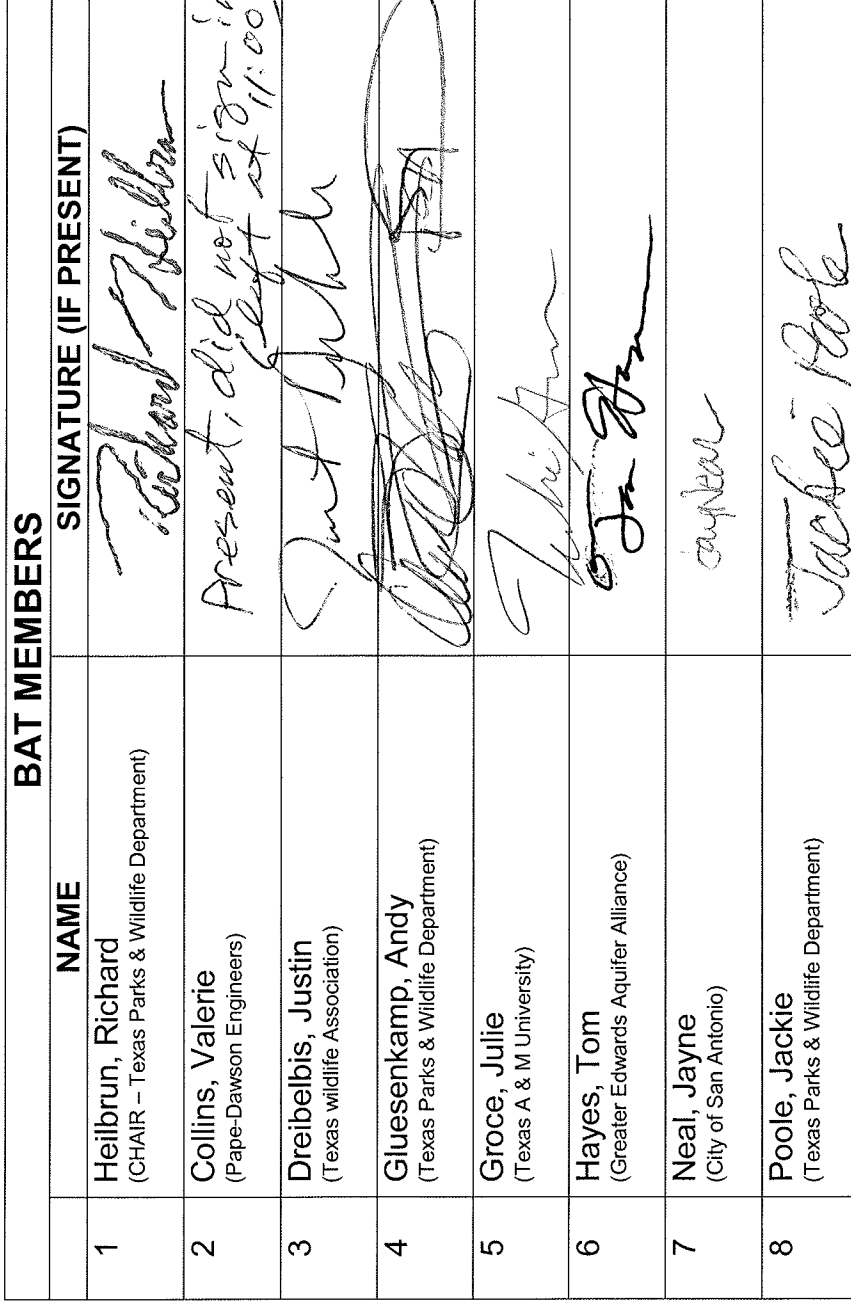 BAT MEMBERS
NAME
SIGNATURE (IF PRESENT)
1
Heilbrun, Richard
(CHAIR – Texas Parks & Wildlife Department)
Richard Heilbrun
2
Collins, Valerie
(Pape-Dawson Engineers)
Present, did not sign in
left at 11:00
3
Dreibelbis, Justin
(Texas wildlife Association)
4
Gluesenkamp, Andy
(Texas Parks & Wildlife Department)
5
Groce, Julie
(Texas A & M University)
6
Hayes, Tom
(Greater Edwards Aquifer Alliance)
7
Neal, Jayne
(City of San Antonio)
8
Poole, Jackie
(Texas Parks & Wildlife Department)
Jackie Poole